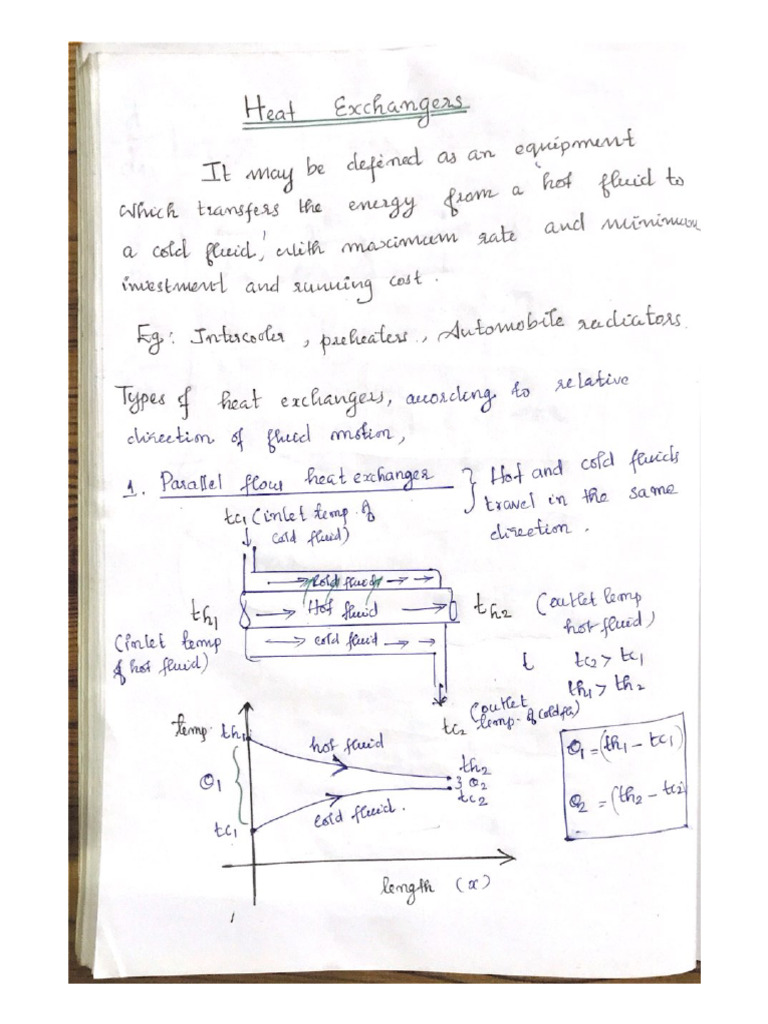 Heat Exchangers
It may be defined as an equipment
which transfers the energy from a hot fluid to
a cold fluid, with maximum rate and minimum
investment and running cost.
Eg: Intercooler, preheaters, Automobile radiators.
Types of heat exchangers, according to relative
direction of fluid motion,
1. Parallel flow heat exchanger } Hot and cold fluids
travel in the same
direction.
tc1 (inlet temp. of
cold fluid)
→ cold fluid → →
th1 → Hot fluid → th2 (outlet temp
hot fluid)
(inlet temp
of hot fluid)
→ cold fluid → →
tc2 > tc1
th1 > th2
tc2 (outlet
temp. of cold
temp. th1
hot fluid
th2
θ1
} θ2
tc2
tc1
cold fluid.
length (x)
θ1 = (th1 - tc1)
θ2 = (th2 - tc2)